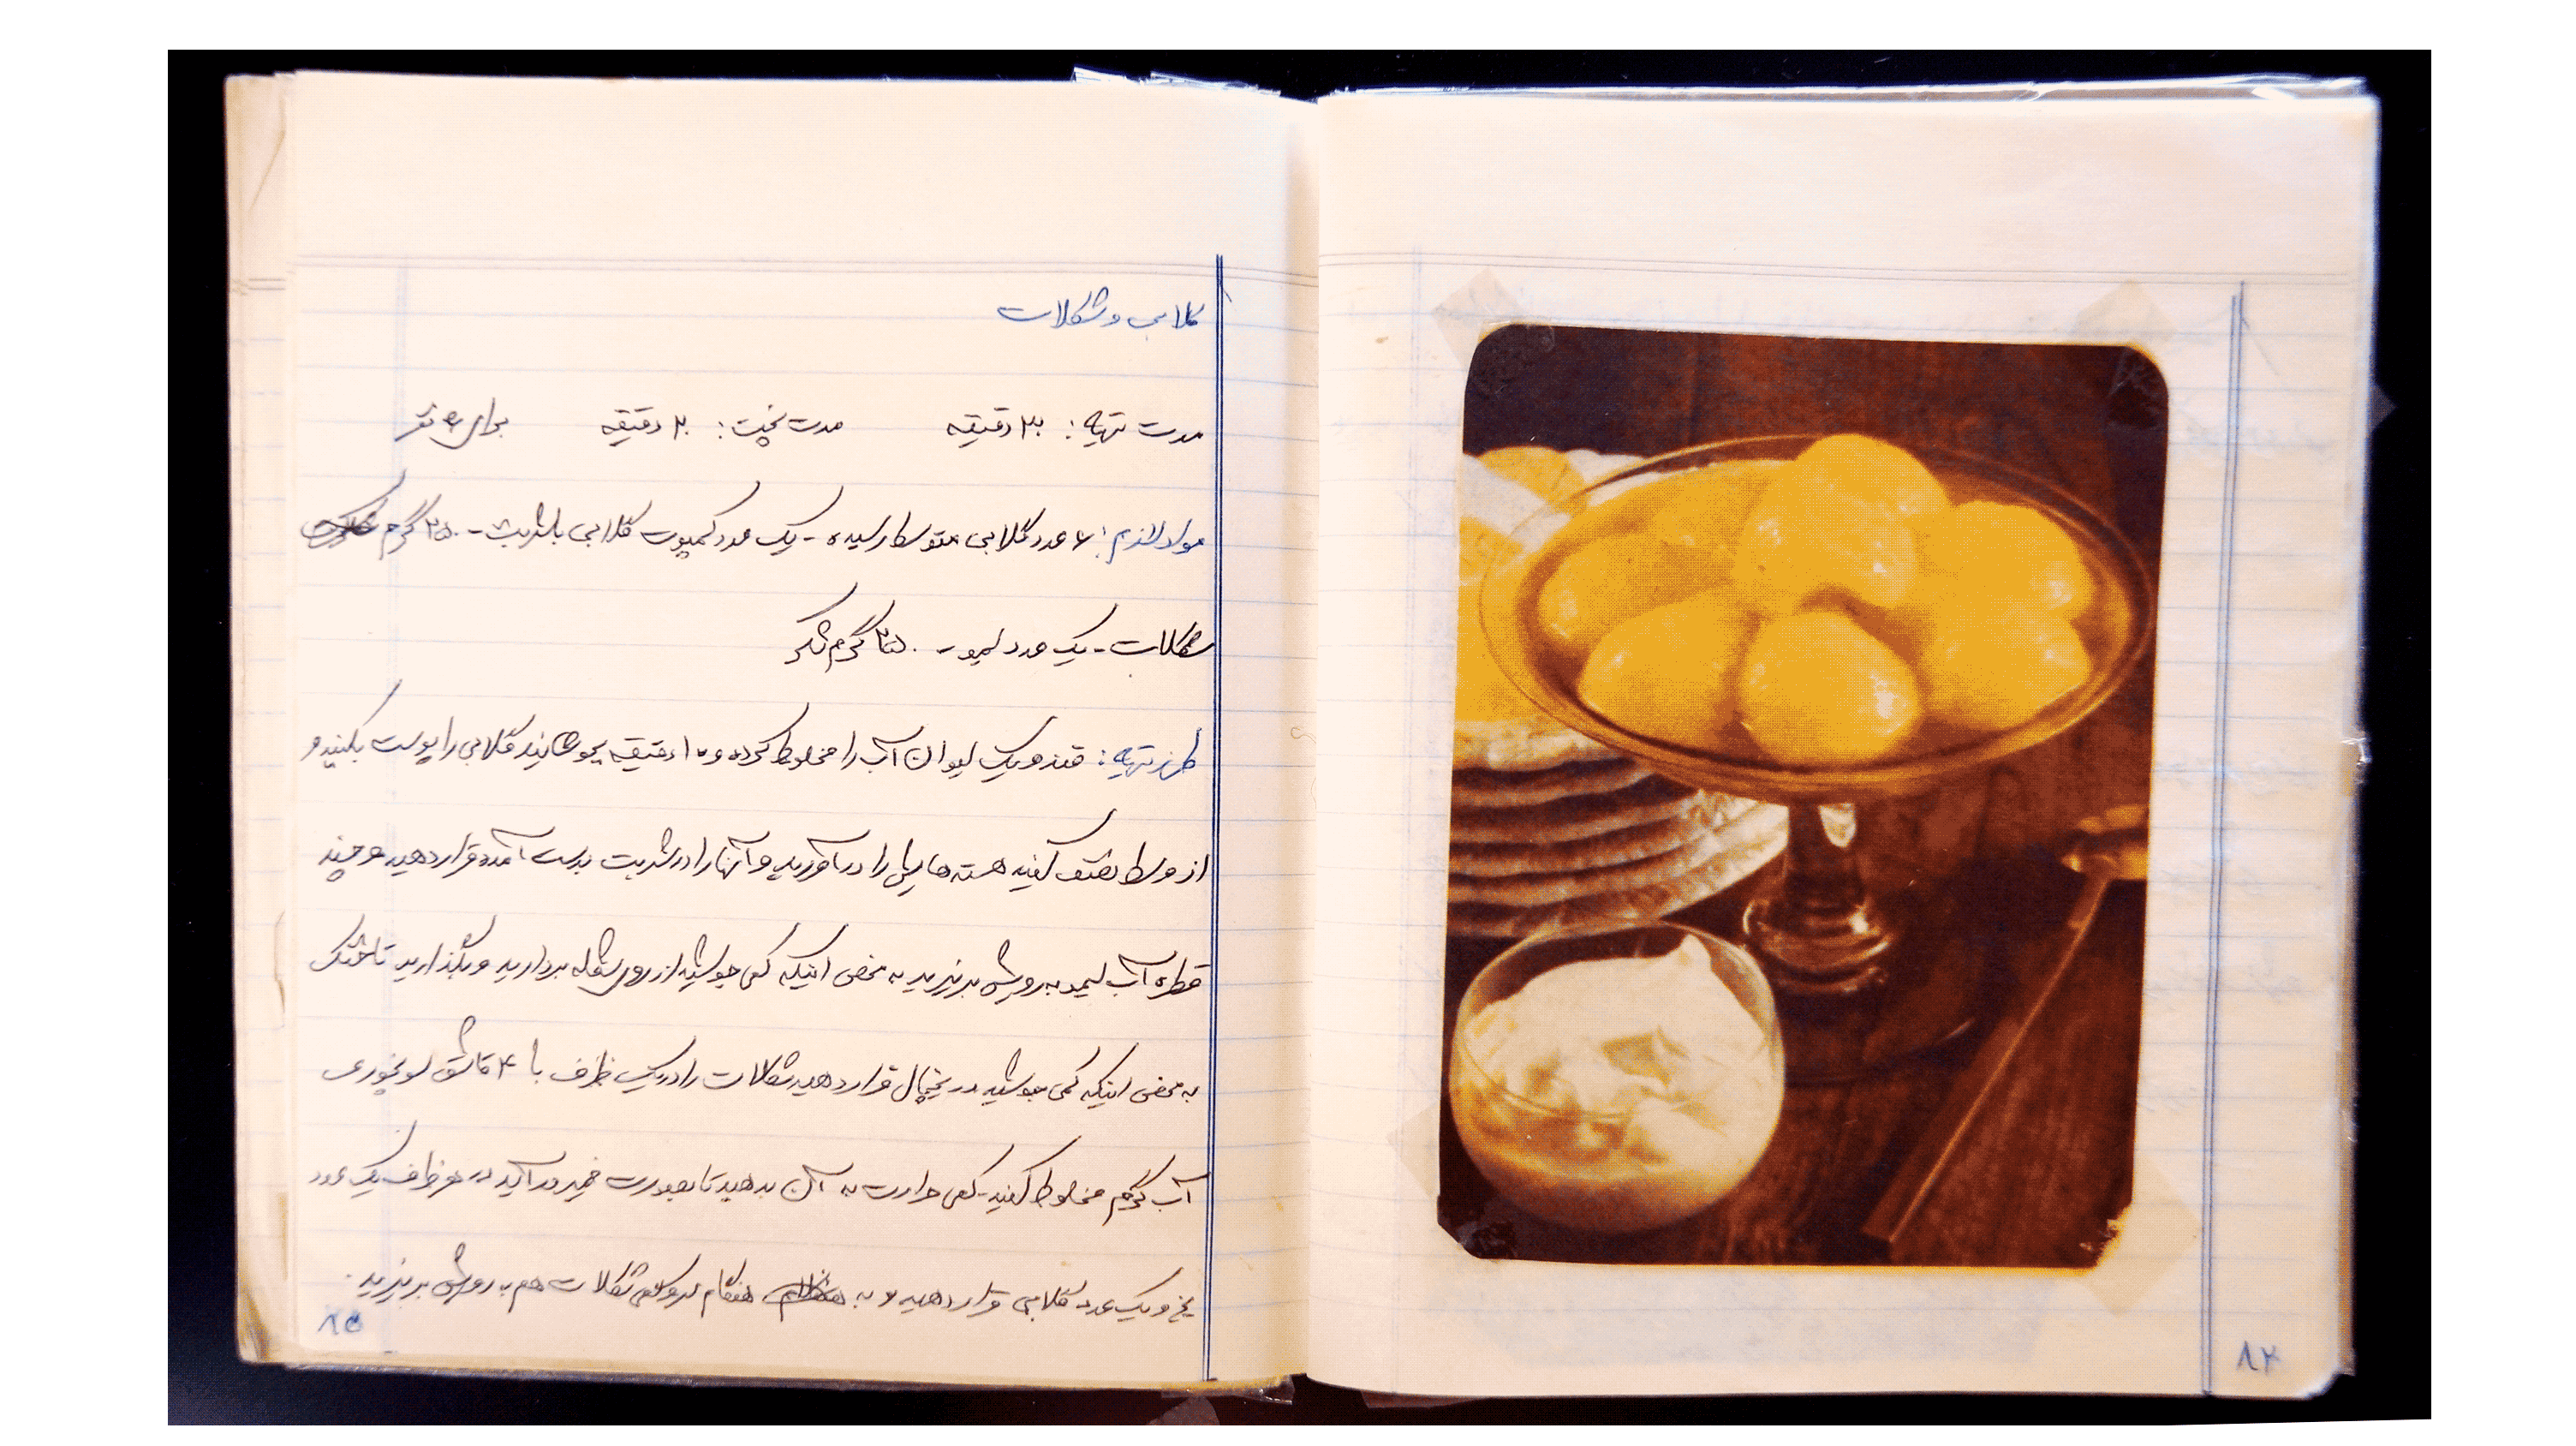 گلابی و شکلات
مدت تهیه: ۳۰ دقیقه مدت پخت: ۲۰ دقیقه برای ۶ نفر
مواد لازم: ۶ عدد گلابی متوسط رسیده - یک عدد کمپوت گلابی با شربت - ۲۵۰ گرم
شکلات - یک عدد لیمو - ۲۵۰ گرم شکر
طرز تهیه: قند و یک لیوان آب را مخلوط کرده و ۱۵ دقیقه بجوشانید گلابی را پوست بکنید و
از وسط نصف کنید هسته هایش را درآورید و آنها را در شربت بدست آمده قرار دهید و چند
قطره آب لیمو به رویش بریزید به محض اینکه کمی جوشید از روی شعله بردارید و بگذارید تا خنک
به محض اینکه کمی جوشید در یخچال قرار دهید شکلات را در یک ظرف با ۴ قاشق سوپخوری
آب گرم مخلوط کنید - کمی حرارت به آن بدهید تا بصورت خمیر درآید در هر ظرف یک عدد
یخ و یک عدد گلابی قرار دهید و به هنگام سرو کمی شکلات هم به رویش بریزید.
۸۵
۸۴